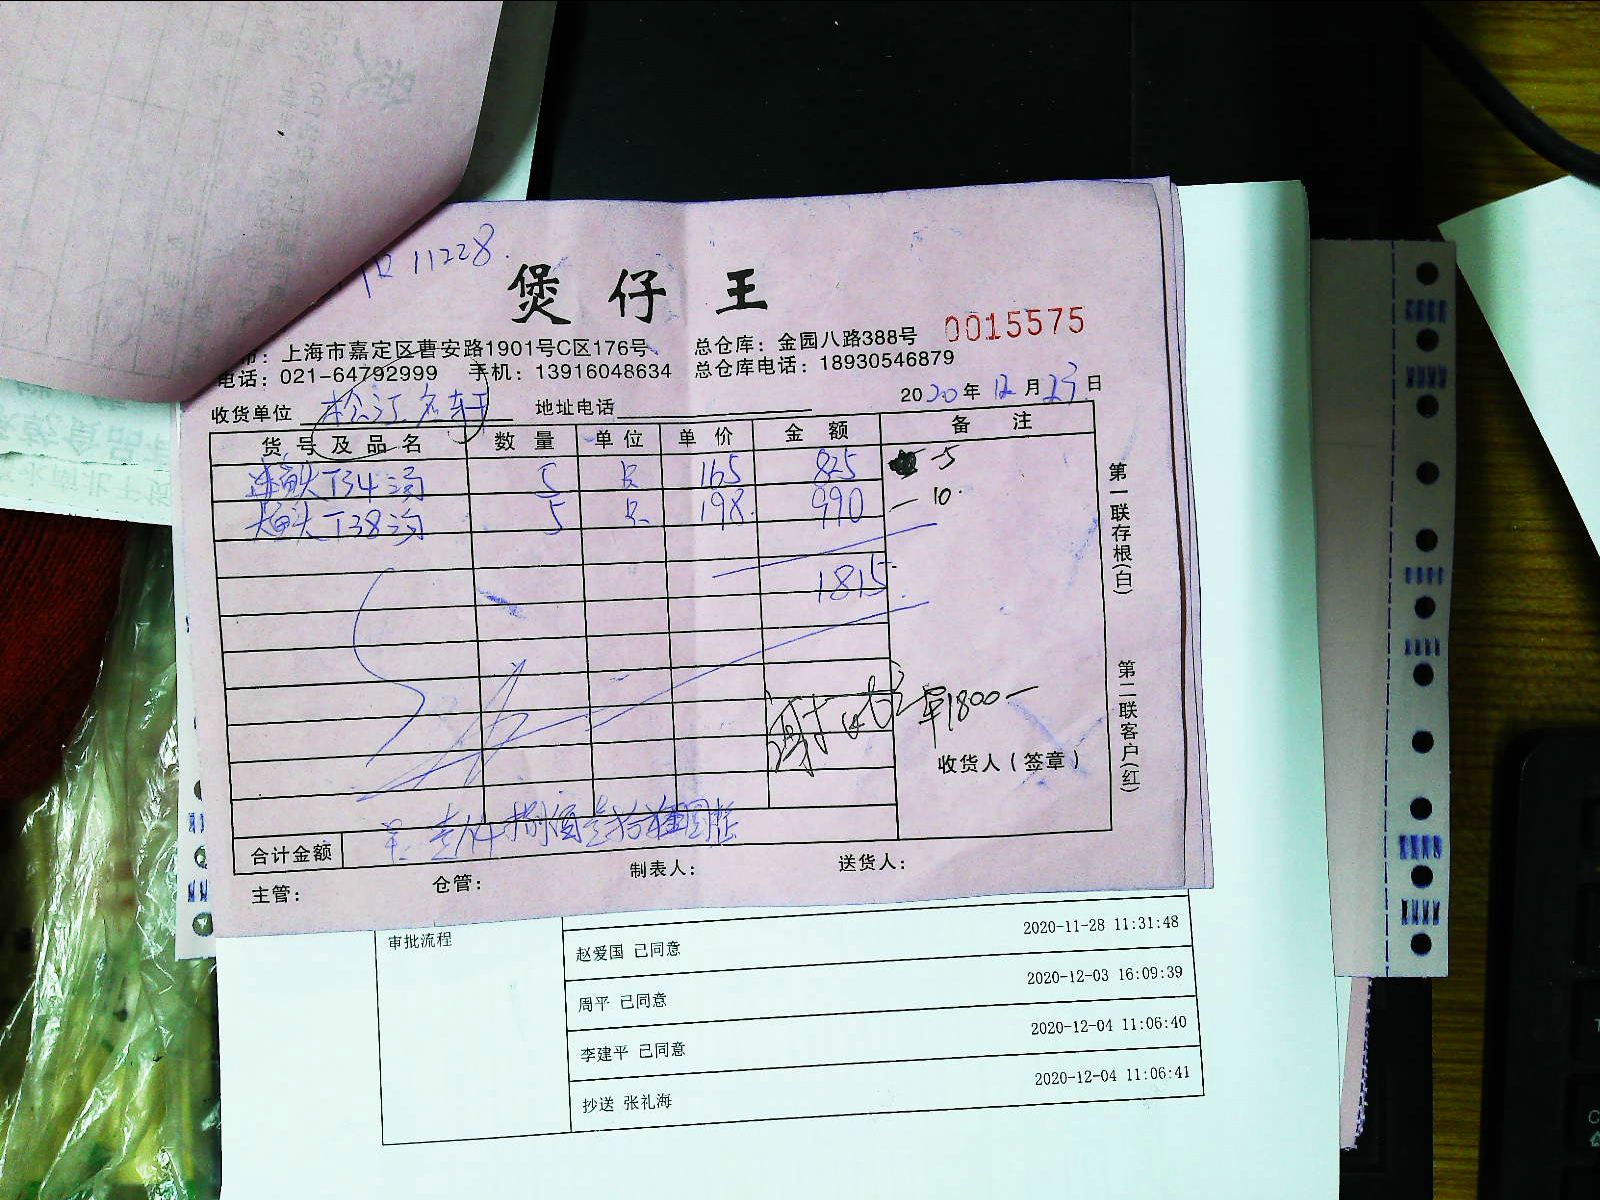 11228.
煲仔王
0015575
：上海市嘉定区曹安路1901号C区176号、 总仓库：金园八路388号
电话：021-64792999 手机：13916048634 总仓库电话：18930546879
收货单位 松江名轩 地址电话 2020年12月23日
货号及品名 数量 单位 单价 金额 备注
鱼头T34 5 只 165 825 -5
鱼头T38 5 只 198. 990 -10.
1815
1800-
收货人（签章）
合计金额 壹仟捌佰壹拾伍圆整
主管： 仓管： 制表人： 送货人：
第一联存根(白)
第二联客户(红)
审批流程
赵爱国 已同意 2020-11-28 11:31:48
周平 已同意 2020-12-03 16:09:39
李建平 已同意 2020-12-04 11:06:40
抄送 张礼海 2020-12-04 11:06:41